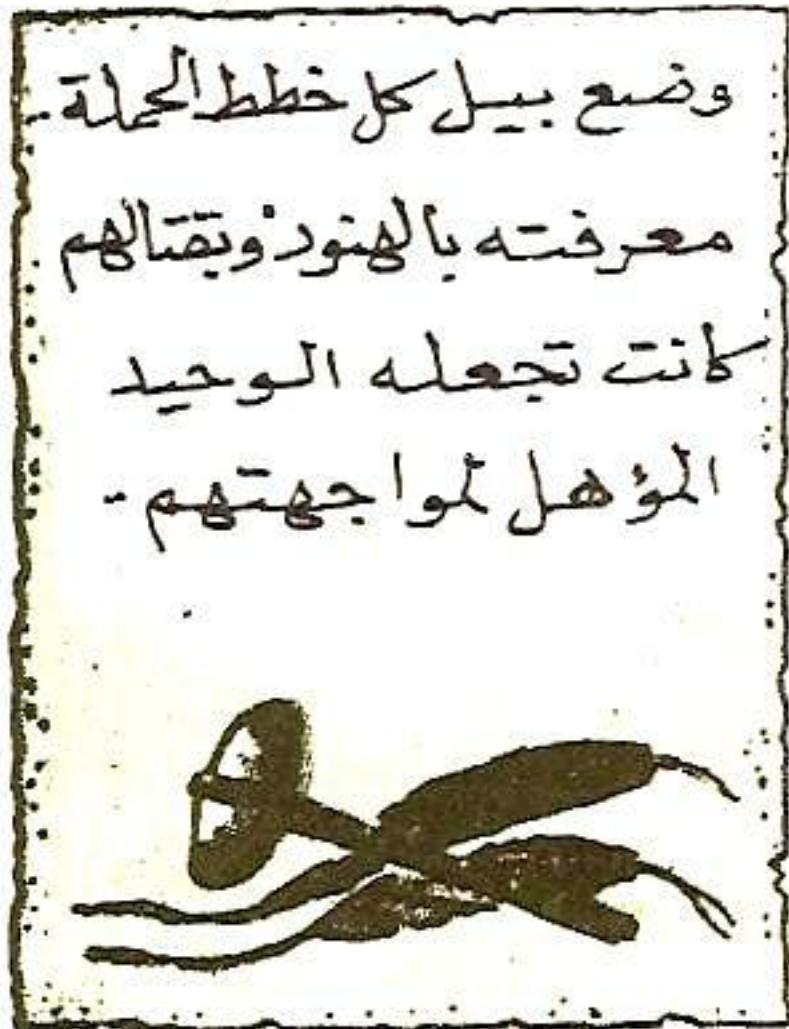 وضع بيل كل خطط الحملة..
معرفته بالهنود وبقتالهم
كانت تجعله الوحيد
المؤهل لمواجهتهم..